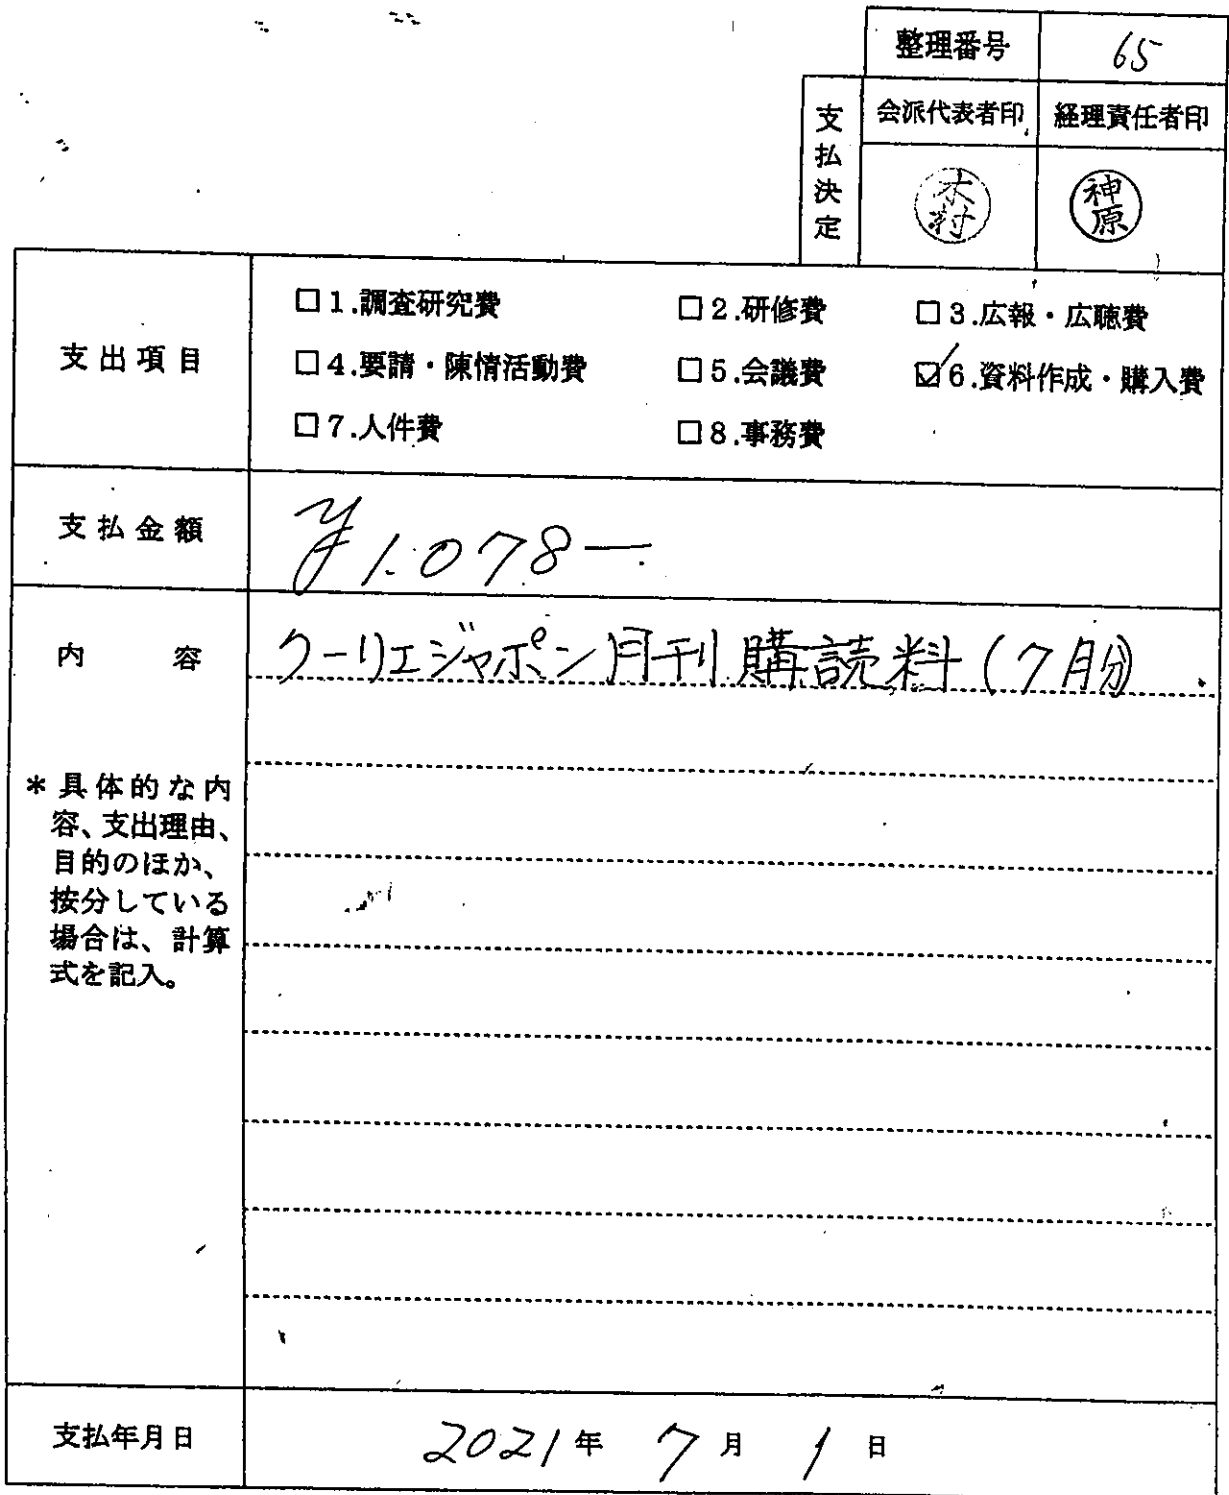 整理番号 65
支払決定 会派代表者印 経理責任者印
木村 神原
支出項目
□1.調査研究費 □2.研修費 □3.広報・広聴費
□4.要請・陳情活動費 □5.会議費 ☑6.資料作成・購入費
□7.人件費 □8.事務費
支払金額 ¥1.078—
内容 クーリエジャポン月刊購読料(7月分)
*具体的な内
容、支出理由、
目的のほか、
按分している
場合は、計算
式を記入。
支払年月日 2021年 7月 1日